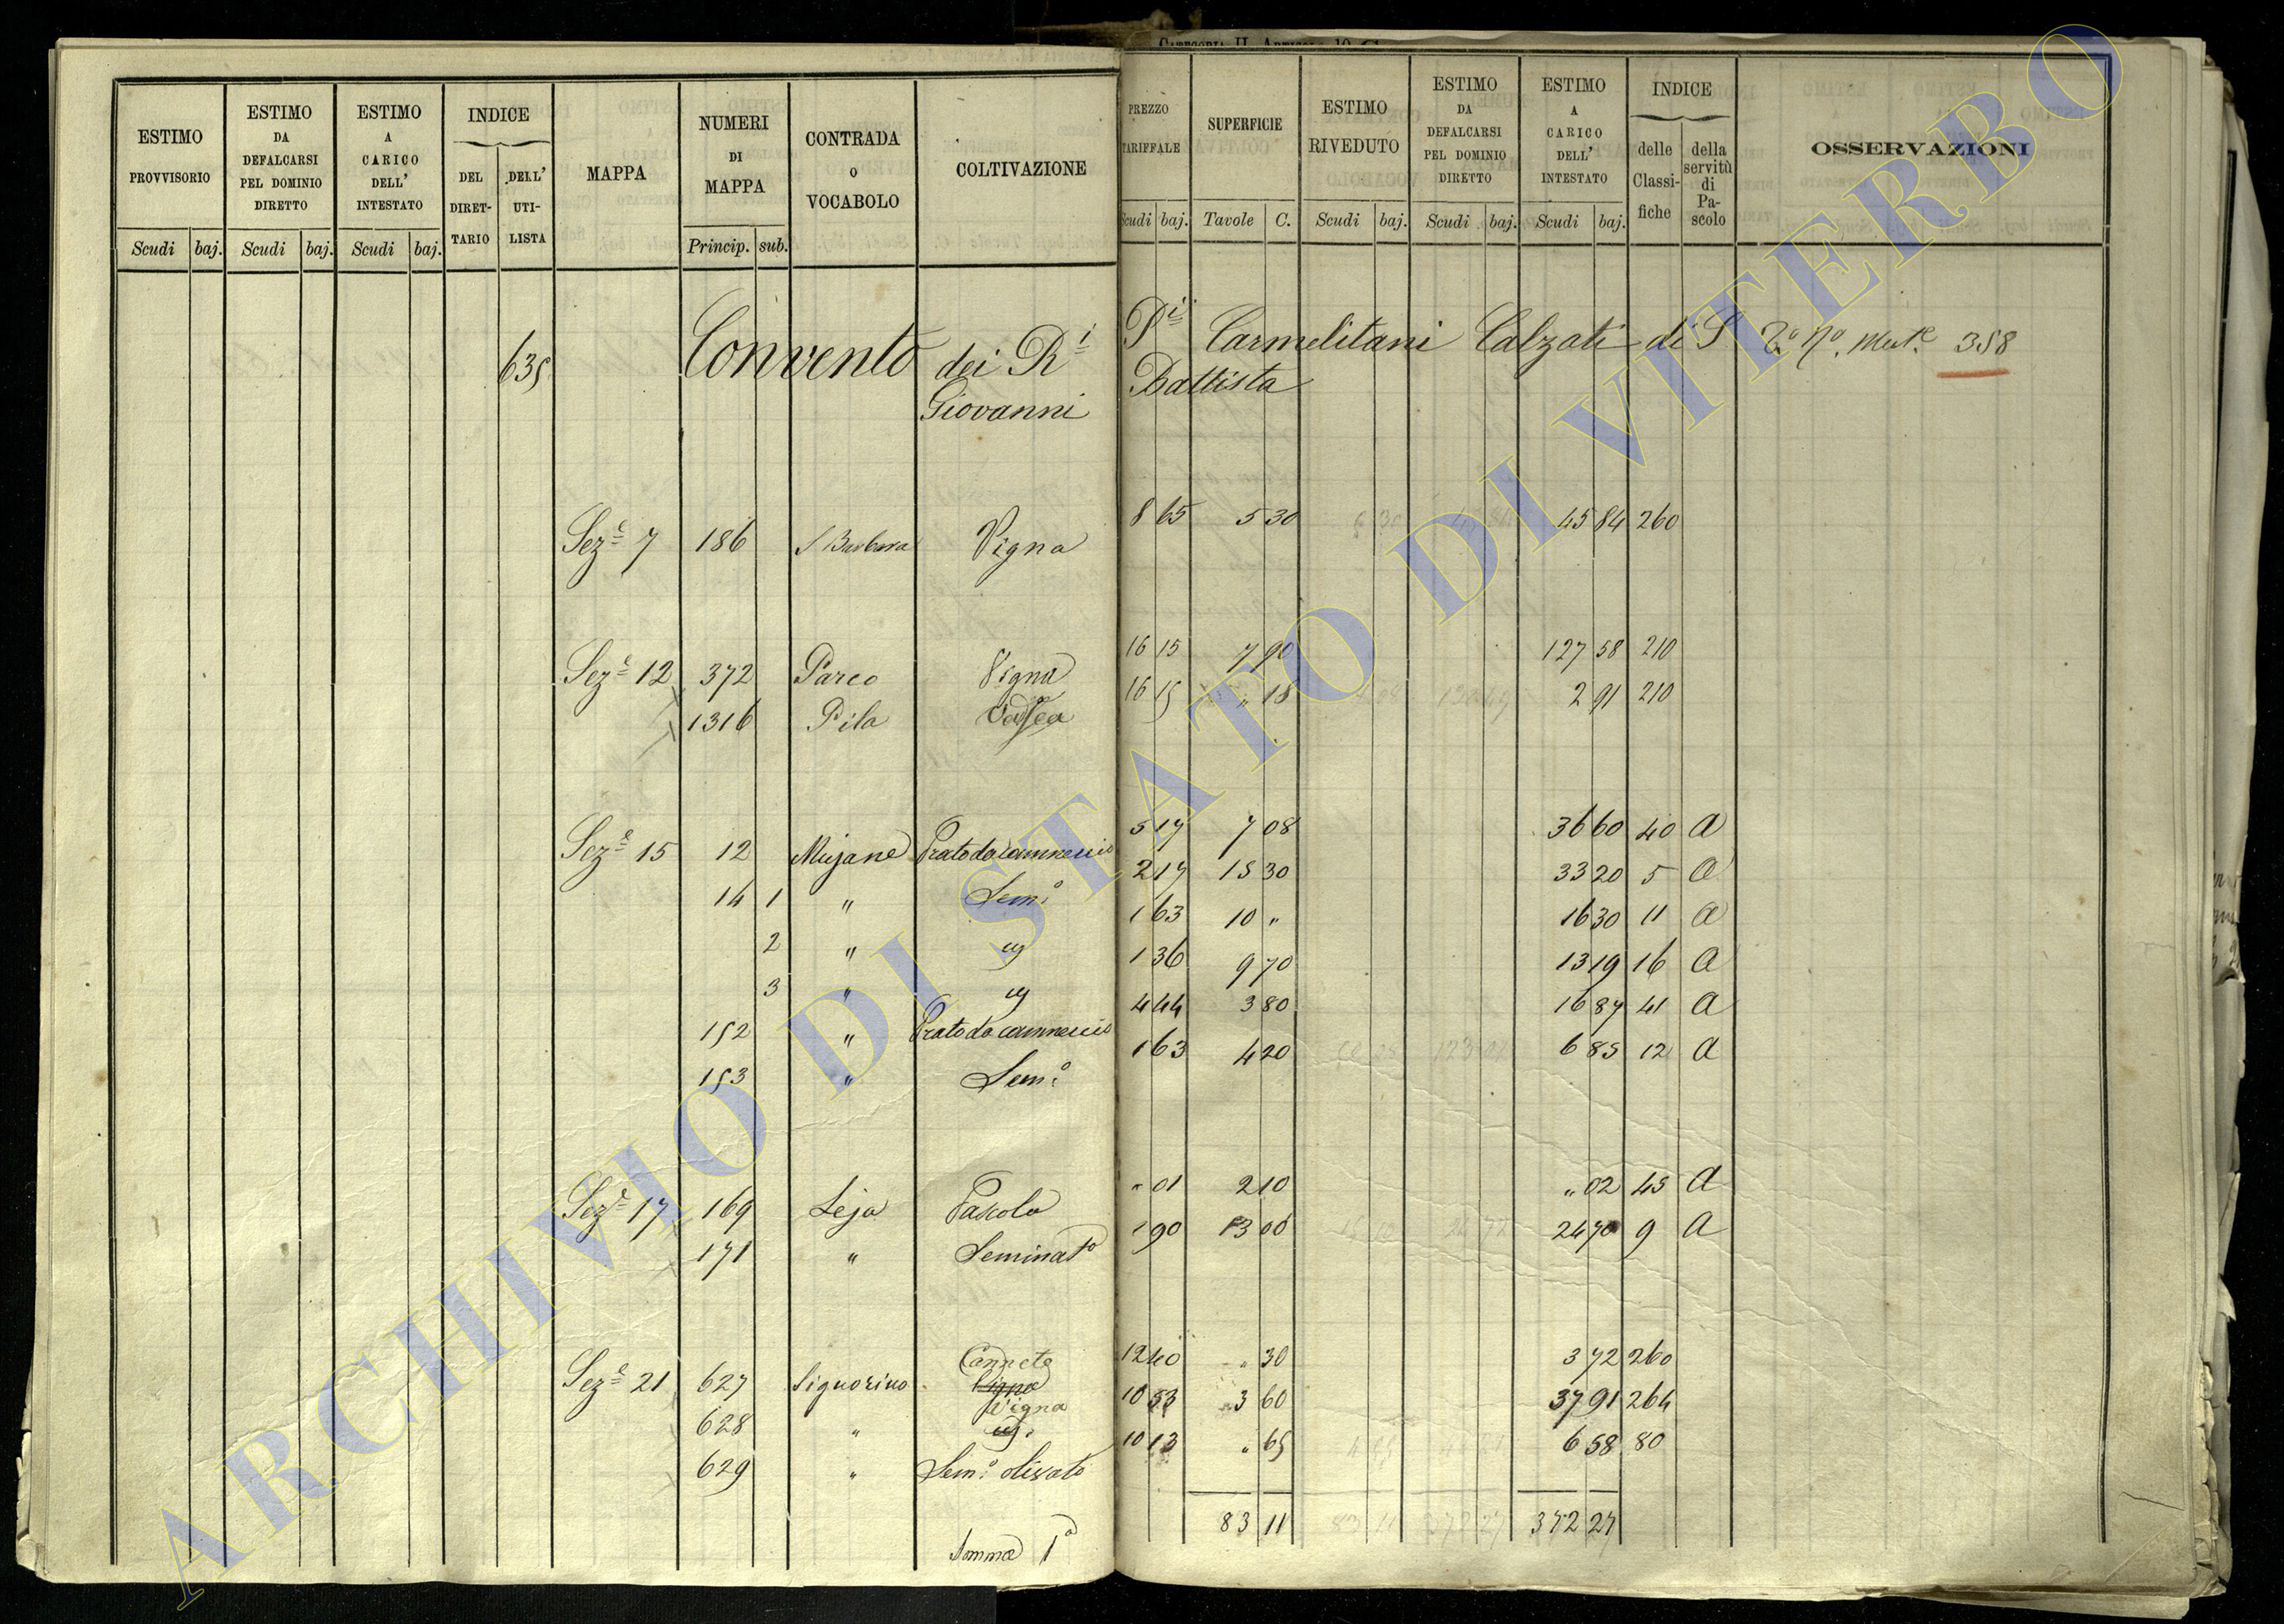 CATEGORIA II. ARTICOLO 10
ESTIMO PROVVISORIO Scudi baj.
ESTIMO DA DEFALCARSI PEL DOMINIO DIRETTO Scudi baj.
ESTIMO A CARICO DELL' INTESTATO Scudi baj.
INDICE DEL DIRET-TARIO DELL' UTI-LISTA
MAPPA
NUMERI DI MAPPA Princip. sub.
CONTRADA O VOCABOLO
COLTIVAZIONE
PREZZO TARIFFALE Scudi baj.
SUPERFICIE Tavole C.
ESTIMO RIVEDUTO Scudi baj.
ESTIMO DA DEFALCARSI PEL DOMINIO DIRETTO Scudi baj.
ESTIMO A CARICO DELL' INTESTATO Scudi baj.
INDICE delle Classi-fiche della servitù di Pa-scolo
OSSERVAZIONI
635 Convento dei Ri Pi Carmelitani Calzati di S 358
Giovanni Battista
Seze 7 186 S Barbara Vigna 8 65 5 30 45 84 260
Seze 12 372 Parco Vigna 16 15 7 90 127 58 210
1316 Pila 16 15 " 18 2 91 210
Seze 15 12 Mujane Prato da commercio 5 17 7 08 36 60 40 A
14 1 " Semo 2 17 15 30 33 20 5 A
2 " " 1 63 10 " 16 30 11 A
3 " " 1 36 9 70 13 19 16 A
152 " Prato da commercio 4 44 3 80 16 87 41 A
153 " Semo 1 63 4 20 6 85 12 A
Seze 17 169 Leja Pascolo " 01 2 10 " 02 45 A
171 " Seminato 1 90 13 00 24 70 9 A
Canneto
Seze 21 627 Signorino Vigna 12 40 " 30 3 72 260
Vigna
628 " 10 53 3 60 37 91 264
629 " Semo olivato 10 13 " 65 6 58 80
Somma 1a 83 11 372 27
ARCHIVIO DI STATO DI VITERBO